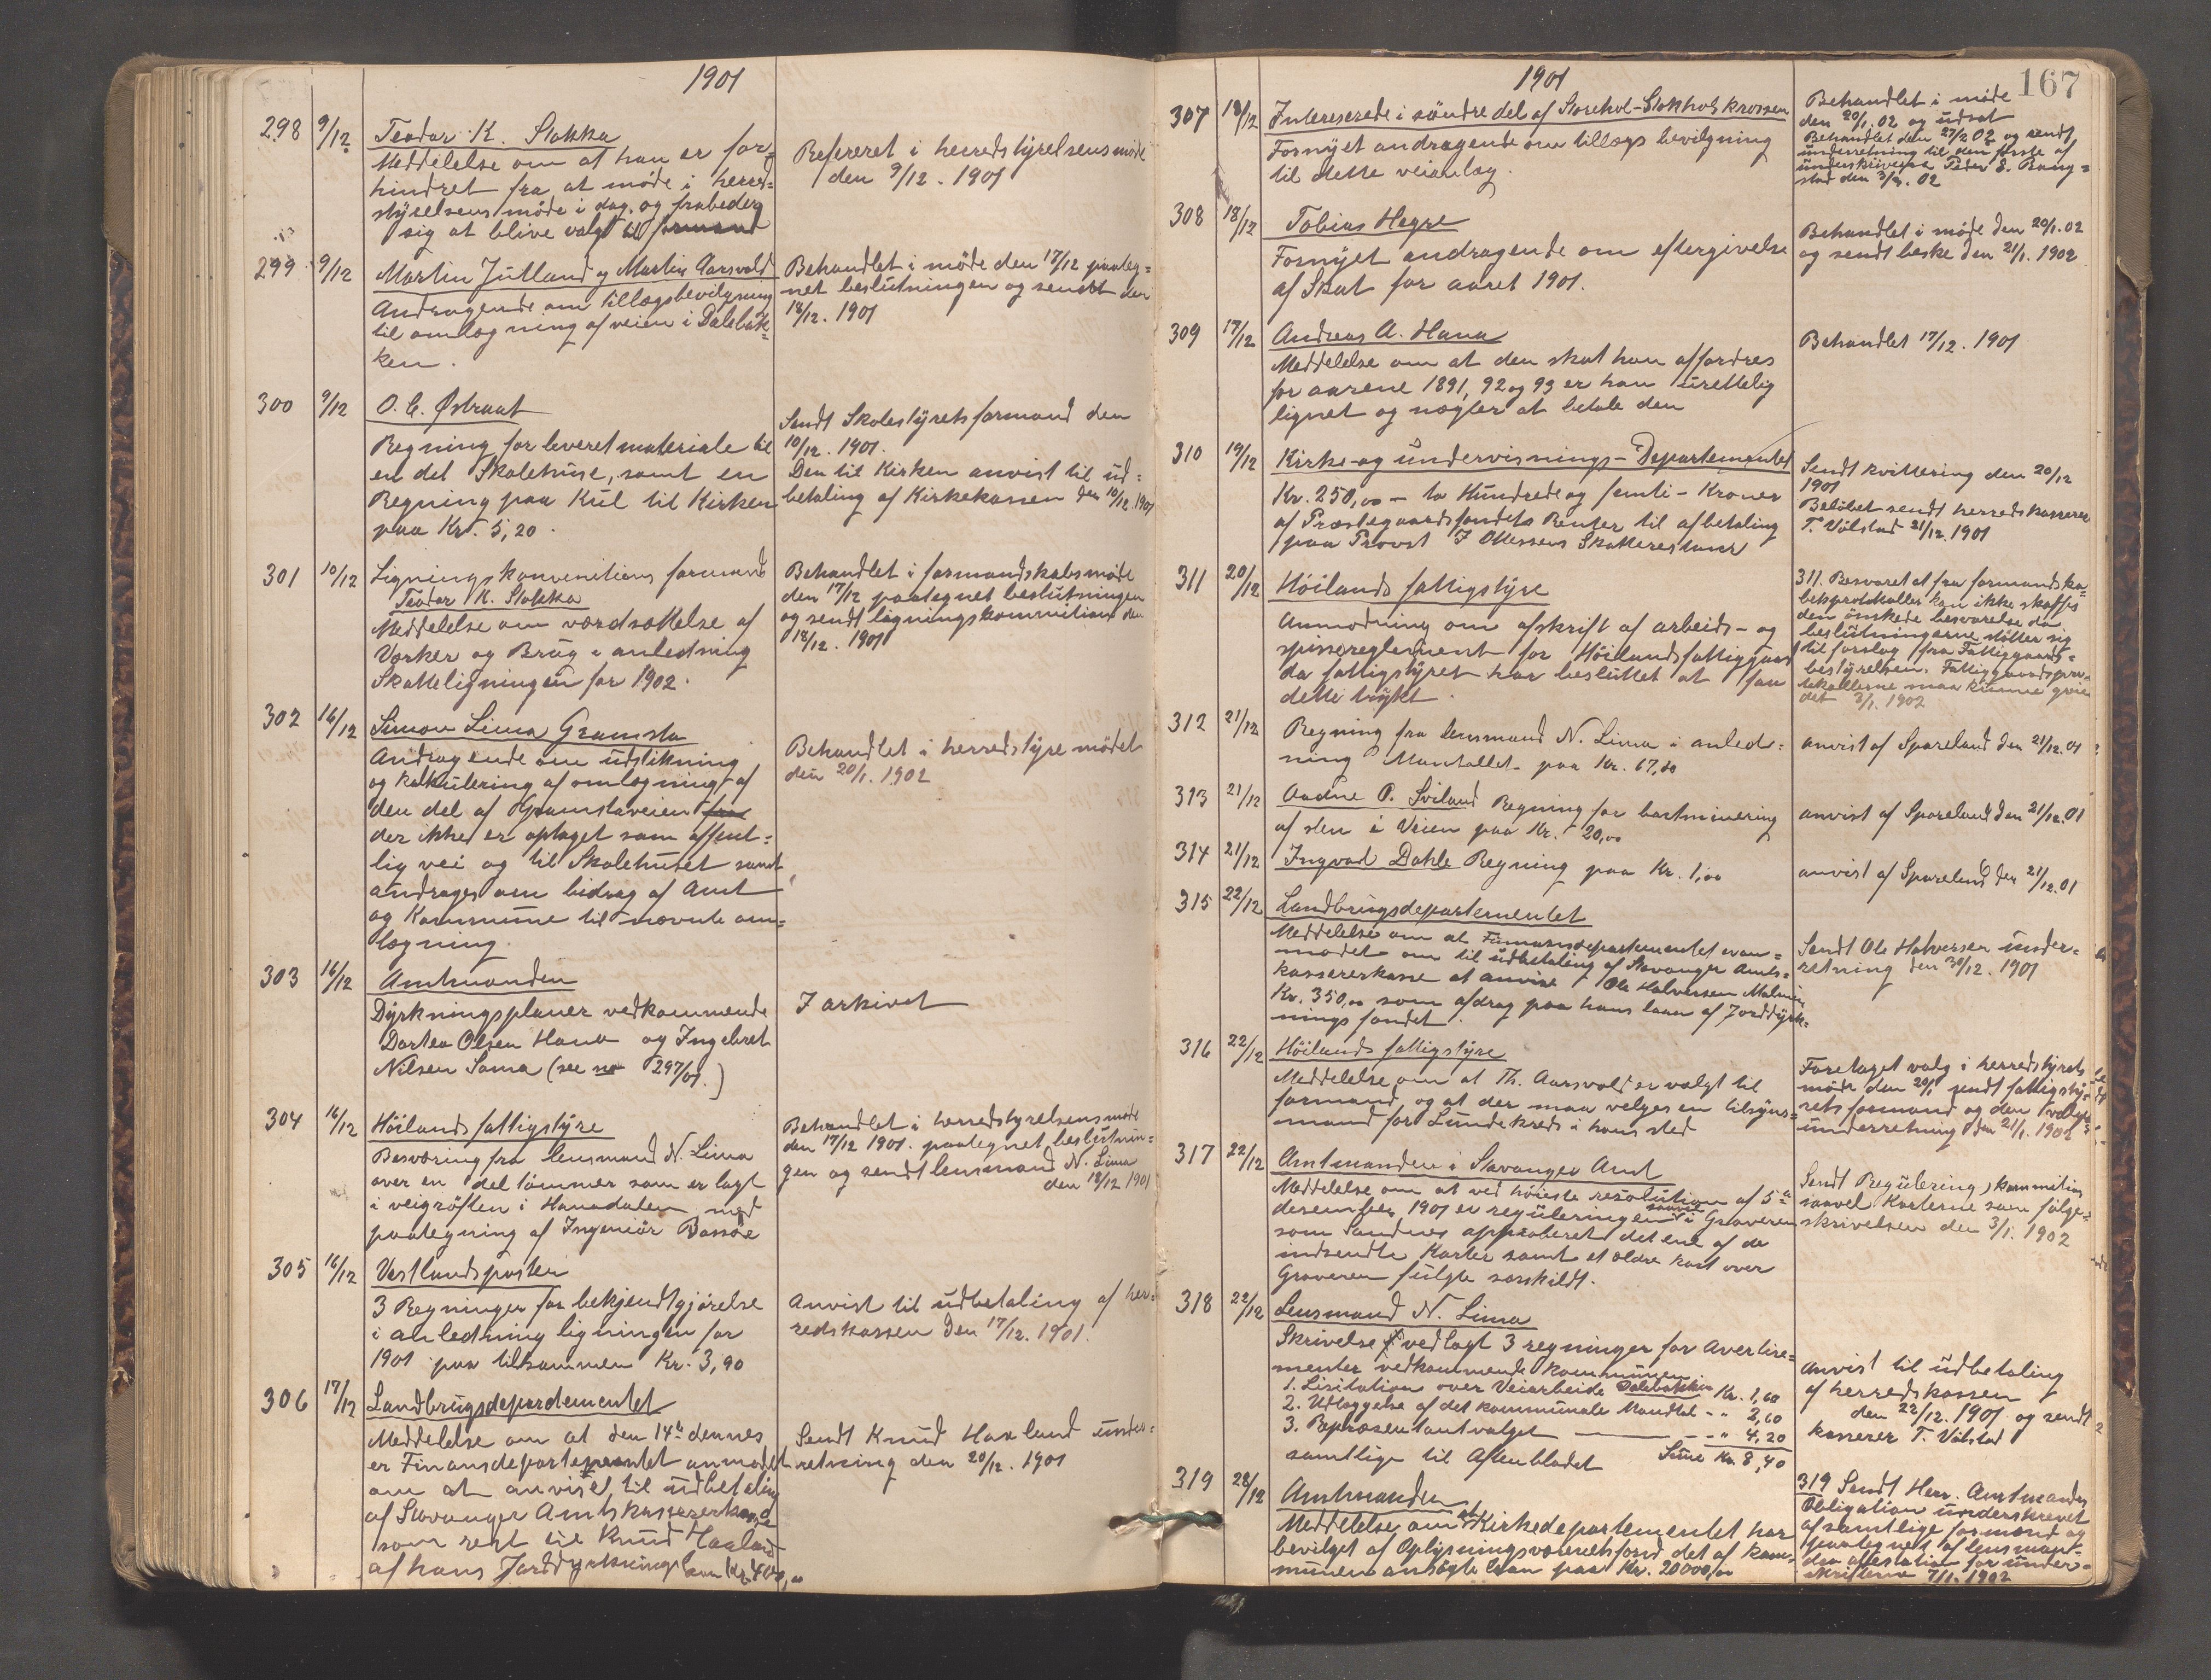 1901
298 9/12 Teodor K. Stokka
Meddelelse om at han er for-
hindret fra at møde i herred-
styrelsens møde i dag, og frabeder
sig at blive valgt til formand
Refereret i herredstyrelsens møde
den 9/12. 1901
299 9/12 Martin Jutland og Martin Aarsvold
Andragende om tillægsbevilgning
til omlægning af veien i Dalebak-
ken.
Behandlet i møde den 17/12 paateg-
net beslutningen og sendt den
18/12. 1901
300 9/12 O. C. Østraat
Regning for leveret materiale til
en del Skolehuse, samt en
Regning paa Kul til Kirken
paa Kr. 5,20.
Sendt Skolestyrets formand den
10/12. 1901.
Den til Kirken anvist til ud-
betaling af Kirkekassen den 10/12. 1901
301 10/12 Ligningskommitions formand
Teodor K. Stokka
Meddelelse om værdsættelse af
Værker og Brug i anledning
Skatteligningen for 1902.
Behandlet i formandskabsmøde
den 17/12 paategnet beslutningen
og sendt ligningskommitionen den
18/12. 1901
302 16/12 Simon Lima Gramsta
Andragende om udstikning
og kalkulering af omlægning af
den del af Gramstaveien
der ikke er optaget som offent-
lig vei og til Skolehuset samt
andrages om bidrag af Amt
og Kommune til nævnte om-
lægning.
Behandlet i herredstyre mødet
den 20/1. 1902
303 16/12 Amtmanden
Dyrkningsplaner vedkommende
Dortea Olsen Hana og Ingebret
Nilsen Soma (see no 297/01.)
I arkivet
304 16/12 Høilands fattigstyre
Besværing fra lensmand N. Lima
over en del tømmer som er lagt
i veigrøften i Hanadalen med
paategning af Ingeniør Bassøe
Behandlet i herredstyrelsens møde
den 17/12 1901. paategnet beslutnin-
gen og sendt lensmand N. Lima
den 18/12 1901
305 16/12 Vestlandsposten
3 Regninger for bekjendtgjørelse
i anledning ligningen for
1901 paa tilsammen Kr. 3,90
Anvist til udbetaling af her-
redskassen den 17/12. 1901.
306 17/12 Landbrugsdepardementet
Meddelelse om at den 14de dennes
er Finansdepartementet anmodet
om at anvise til udbetaling
af Stavanger Amtskassererkasse
som rest til Knud Haaland
af hans Jorddyrkningslaan Kr. 400,00
Sendt Knud Haaland under-
retning den 20/12. 1901
1901
167
307 18/12 Intereserede i søndre del af Storehol-Stokholskrossen
Fornyet andragende om tillægs bevilgning
til dette veianlæg.
Behandlet i møde
den 20/1. 02 og udsat
Behandlet den 27/2 02 og sendt
underretning til den første af
underskriverne Peder E. Rang-
stad den 3/3. 02
308 18/12 Tobias Hegre
Fornyet andragende om eftergivelse
af Skat for aaret 1901.
Behandlet i møde den 20/1. 02
og sendt beske den 21/1. 1902
309 17/12 Andreas A. Hana
Meddelelse om at den skat han affordres
for aarene 1891, 92 og 93 er han urettelig
lignet og nægter at betale den
Behandlet 17/12. 1901
310 19/12 Kirke- og undervisnings-Departementet
Kr. 250,00 - to Hundrede og femti - Kroner
af Præstegaardsfondets Renter til afbetaling
paa Provst J Ottessens Skatterestance
Sendt kvittering den 20/12
1901
Beløbet sendt herredskasserer
T. Vølstad 21/12. 1901
311 20/12 Høilands fattigstyre
Anmodning om afskrift af arbeids- og
spisereglement for Høilands fattiggaard
da fattigstyret har besluttet at faa
dette trykt.
311. Besvaret at fra formandska-
betsprotokoller kan ikke skaffes
den ønskede besvarelse da
beslutningerne støtter sig
til forslag fra Fattiggaards-
bestyrelsen. Fattiggaardspro-
tokollerne maa kunne give
det 3/1. 1902
312 21/12 Regning fra lensmand N. Lima i anled-
ning Mantallet paa Kr. 67,80
anvist af Spareland den 21/12. 01
313 21/12 Aadne P. Sviland Regning for bortminering
af sten i Veien paa Kr. 20,00
anvist af Spareland den 21/12. 01
314 21/12 Ingvad Dahle Regning paa Kr. 1,00
anvist af Spareland den 21/12. 01
315 22/12 Landbrugsdepartementet
Meddelelse om at Finansdepartementet er an-
modet om til udbetaling af Stavanger Amts-
kassererkasse at anvise Ole Halversen Malmin
Kr. 350,00 som afdrag paa hans laan af Jorddyrk-
nings fondet.
Sendt Ole Halversen under-
retning den 30/12. 1901
316 22/12 Høilands fattigstyre
Meddelelse om at Th. Aarsvold er valgt til
formand og at der maa velges en tilsyns-
mand for Lundekreds i hans sted
Foretaget valg i herredstyrets
møde den 20/1 sendt fattigsty-
rets formand og den valgte
underretning den 21/1. 1902
317 22/12 Amtmanden i Stavanger Amt
Meddelelse om at ved høieste resolution af 5te
desember 1901 er reguleringen saavel i Graveren
som Sandnes approberet det ene af de
indsendte Karter samt et ældre kart over
Graveren fulgte særskildt.
Sendt Regulerings kommition
saavel Karterne som følge-
skrivelsen den 3/1. 1902
318 22/12 Lensmand N. Lima
Skrivelse vedlagt 3 regninger for Averttise-
menter vedkommende kommunen
1. Lisitation over Veiarbeide Dalebakken Kr. 1,60
2. Udlæggelse af det kommunale Mandtal - " 2,60
3. Repræsentantvalget - " 4,20
samtlige til Aftenbladet Sum Kr. 8,40
anvist til udbetaling
af herredskassen
den 22/12. 1901 og sendt
kasserer T. Vølstad
319 28/12 Amtmanden
Meddelelse om at Kirkedepartementet har
bevilget af Oplysningsvæsenets fond det af kom-
munen ansøgte laan paa Kr. 20000,00
319 Sendt Herr. Amtmanden
Obligation underskrevet
af samtlige formænd og
paategnet af lensman-
den attestation for under-
skrifterne 7/1. 1902